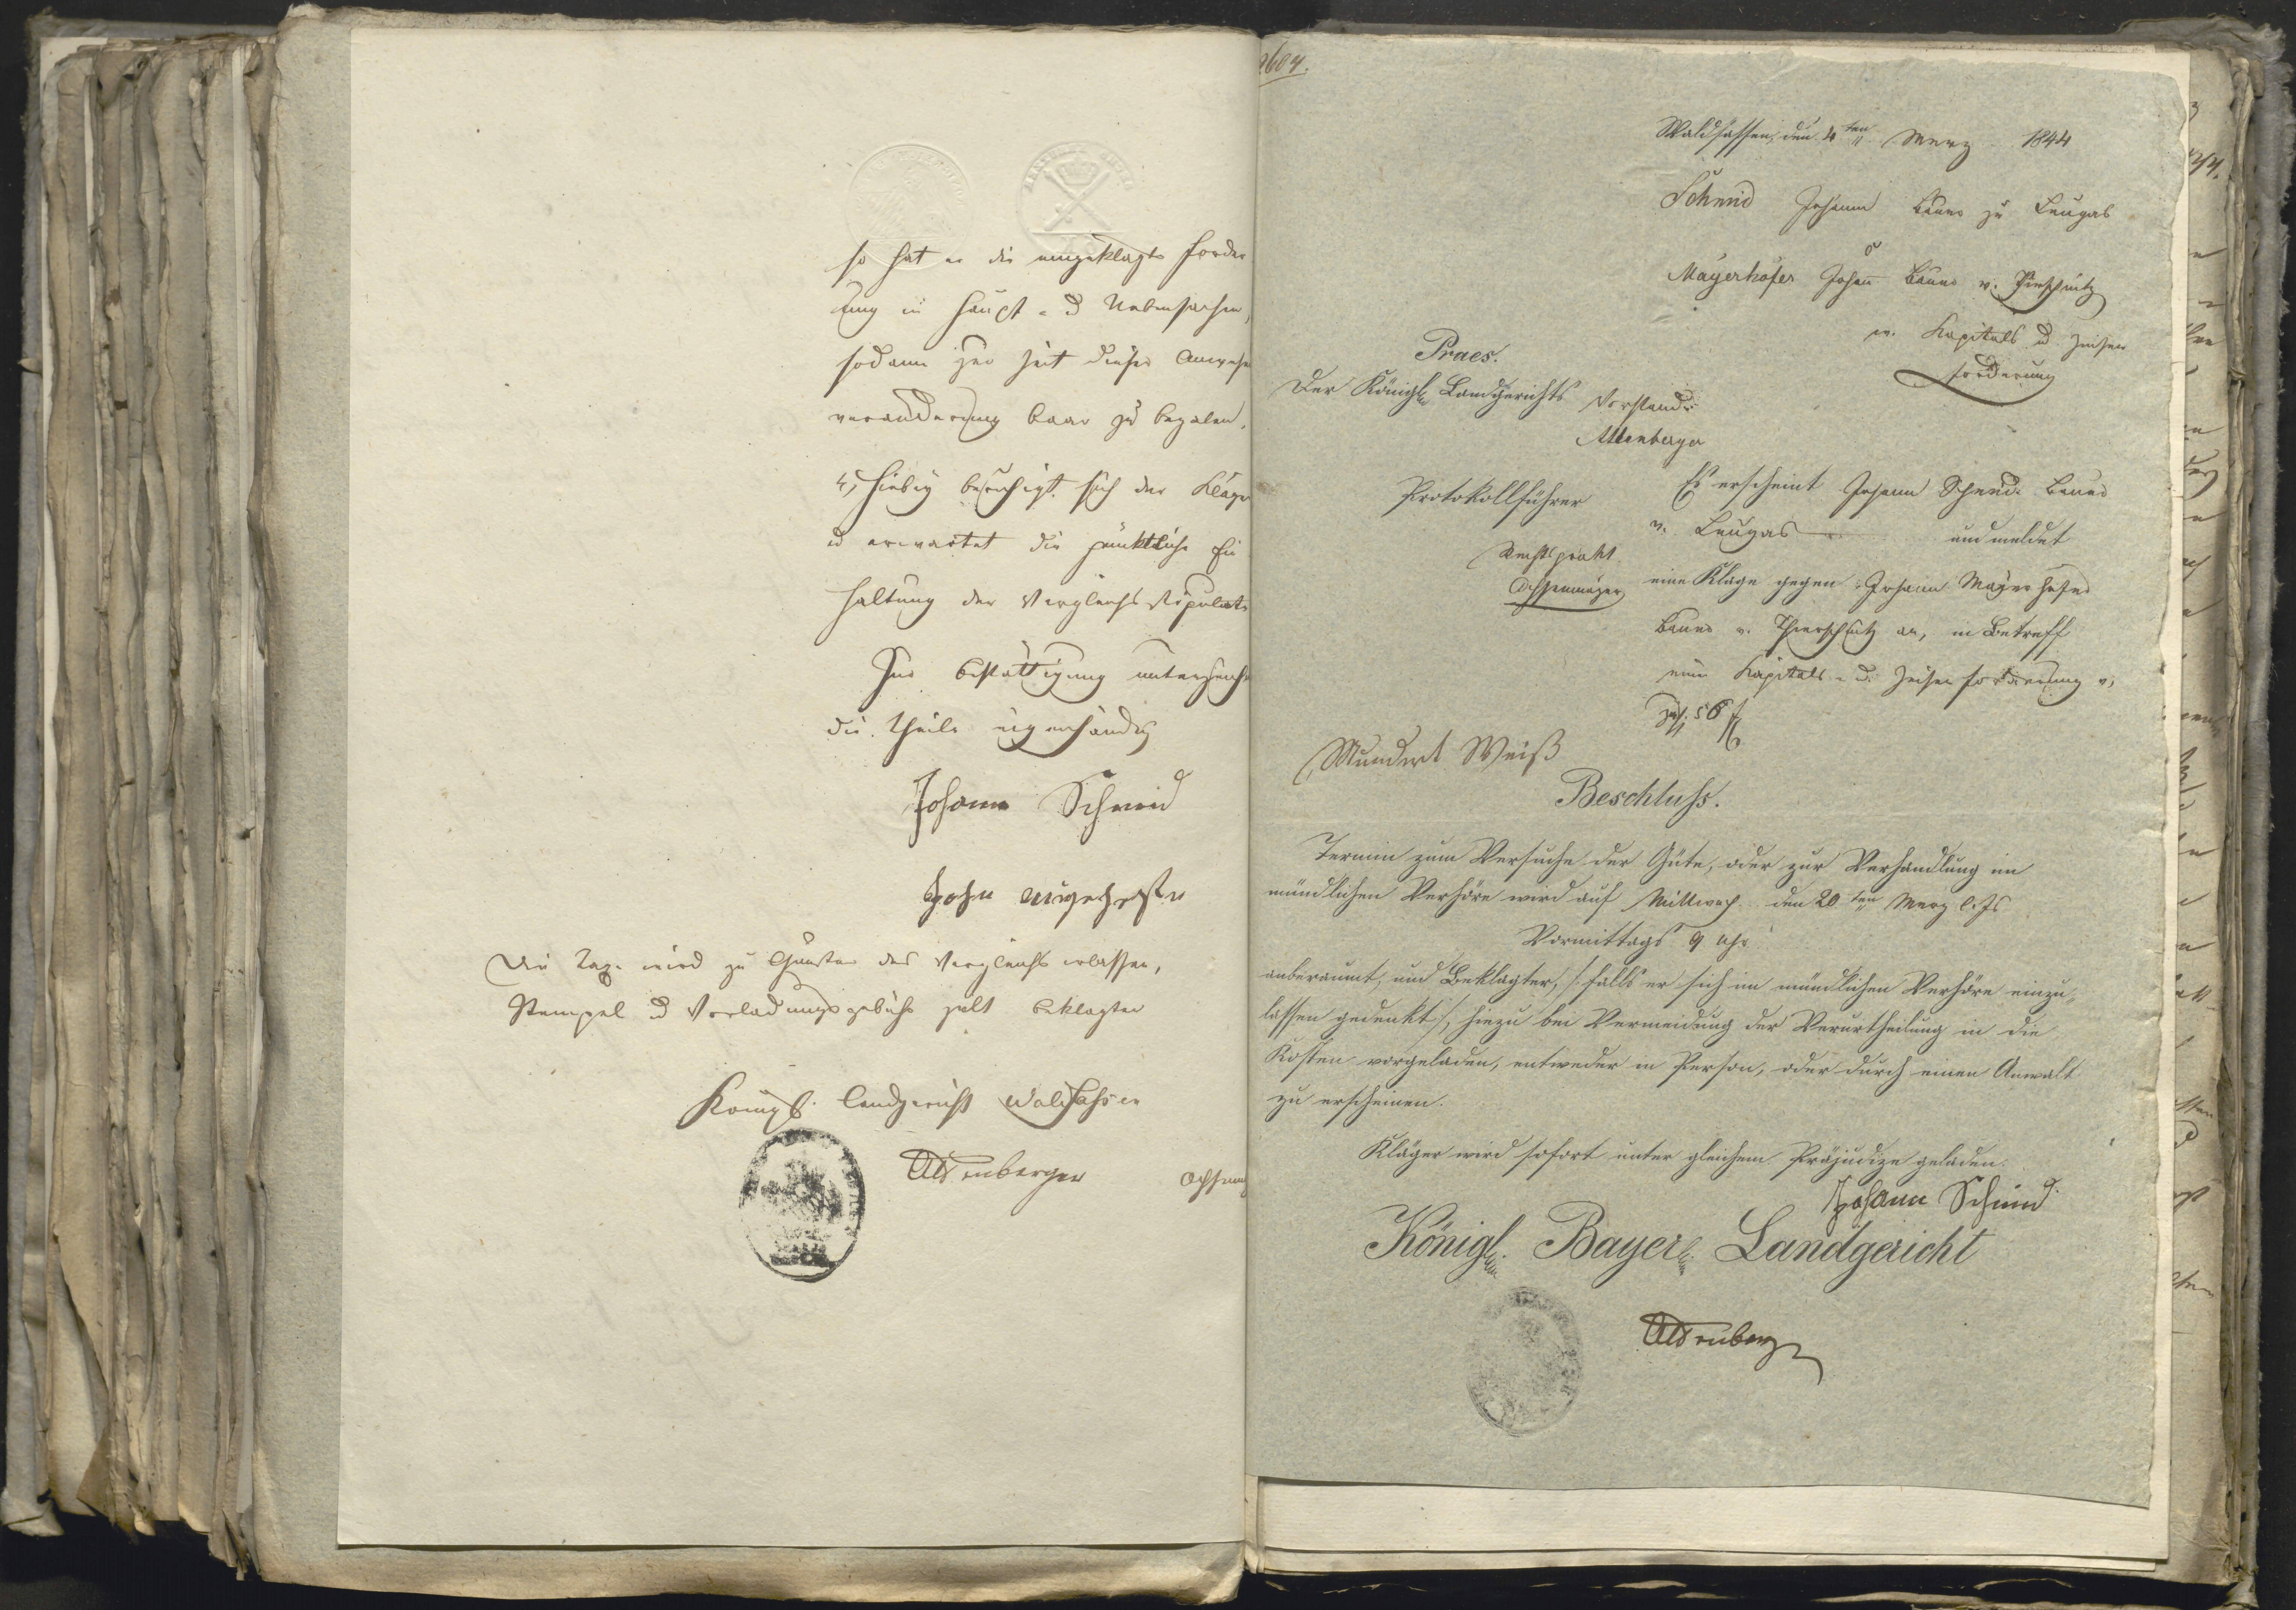 so hat er die eingeklagte Forder
ung in Haupt- & Nebensachen,
sodann zur Zeit dieser Anwesens
veränderung baar zu bezalen.
4, Hiebey beruhigt sich der Kläger
u erwartet die pünktliche Ein
haltung der Vergleichs Stipulate
Zur Bestättigung unterzeichn
die Theile eigenhändig
Johann Schmid
Die Tax wird zu Gunsten des Vergleichs erlassen,
Stempel & Vorladungsgebühr zalt Beklagter
Königl. Landgericht Waldsassen
Altenberger
2604.
Waldsassen, den 4ten Merz 1844
Schmid Johann Bauer zu Leugas
Mayerhöfer Johann Bauer v.
w. Kapitals u. Zinsen
forderung
Praes.
Der Königl. Landgerichts Vorstand:
Altenberger
Protokollführer
Rechtsprakt.
Es erscheint Johann Schmid Bauer
v. Leugas und meldet
eine Klage gegen Johann Mayerhofer
Bauer v. an, in Betreff
einer Kapitals- u. Zinsenforderung v.
56 f
Mundirt Weiß
Beschluss.
Termin zum Versuche der Güte, oder zur Verhandlung im
mündlichen Verhöre wird auf Mittwoch den 20ten Merz l. Js
Vormittags 9 Uhr
anberaumt, und Beklagter, /: falls er sich im mündlichen Verhöre einzu-
lassen gedenkt :/, hiezu bei Vermeidung der Verurtheilung in die
Kosten vorgeladen, entweder in Person, oder durch einen Anwalt
zu erscheinen.
Kläger wird sofort unter gleichem Präjudize geladen.
Johann Schmid
Königl. Bayer. Landgericht
Altenberger